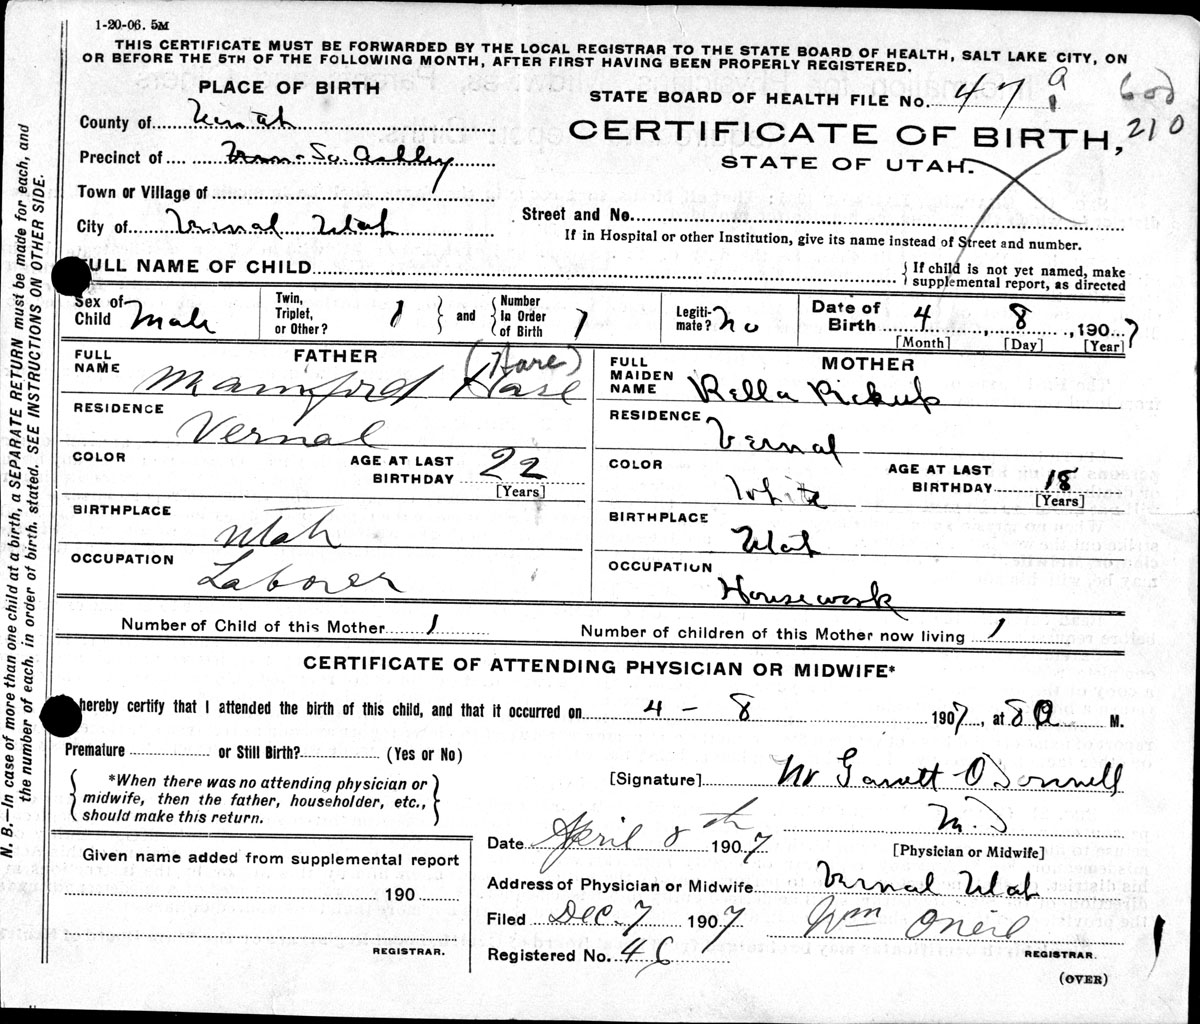 1-20-06. 5M
THIS CERTIFICATE MUST BE FORWARDED BY THE LOCAL REGISTRAR TO THE STATE BOARD OF HEALTH, SALT LAKE CITY, ON
OR BEFORE THE 5TH OF THE FOLLOWING MONTH, AFTER FIRST HAVING BEEN PROPERLY REGISTERED.
PLACE OF BIRTH
STATE BOARD OF HEALTH FILE No. 47 a
County of Uintah
CERTIFICATE OF BIRTH, 210
Precinct of Ashley
STATE OF UTAH.
Town or Village of
Street and No.
City of Vernal Utah
If in Hospital or other Institution, give its name instead of Street and number.
FULL NAME OF CHILD
If child is not yet named, make
supplemental report, as directed
Sex of Child Male
Twin, Triplet, or Other? 1 and Number In Order of Birth 1
Legitimate? No
Date of Birth 4, 8, 1907
[Month] [Day] [Year]
FATHER
FULL NAME Mainford Hase (Hare)
RESIDENCE Vernal
COLOR
AGE AT LAST BIRTHDAY 22
[Years]
BIRTHPLACE Utah
OCCUPATION Laborer
MOTHER
FULL MAIDEN NAME Rella Pickup
RESIDENCE Vernal
COLOR White
AGE AT LAST BIRTHDAY 18
[Years]
BIRTHPLACE Utah
OCCUPATION Housework
Number of Child of this Mother 1 Number of children of this Mother now living 1
CERTIFICATE OF ATTENDING PHYSICIAN OR MIDWIFE*
hereby certify that I attended the birth of this child, and that it occurred on 4 - 8 1907, at 8 M.
Premature or Still Birth? (Yes or No)
*When there was no attending physician or
midwife, then the father, householder, etc.,
should make this return.
[Signature] Garrett O'Donnell
M.D
[Physician or Midwife]
Date April 8th 1907
Address of Physician or Midwife Vernal Utah
Filed Dec. 7 1907 Wm Oneil
REGISTRAR.
Registered No. 46
(OVER)
Given name added from supplemental report
190
REGISTRAR.
N. B.—In case of more than one child at a birth, a SEPARATE RETURN must be made for each, and
the number of each, in order of birth, stated. SEE INSTRUCTIONS ON OTHER SIDE.